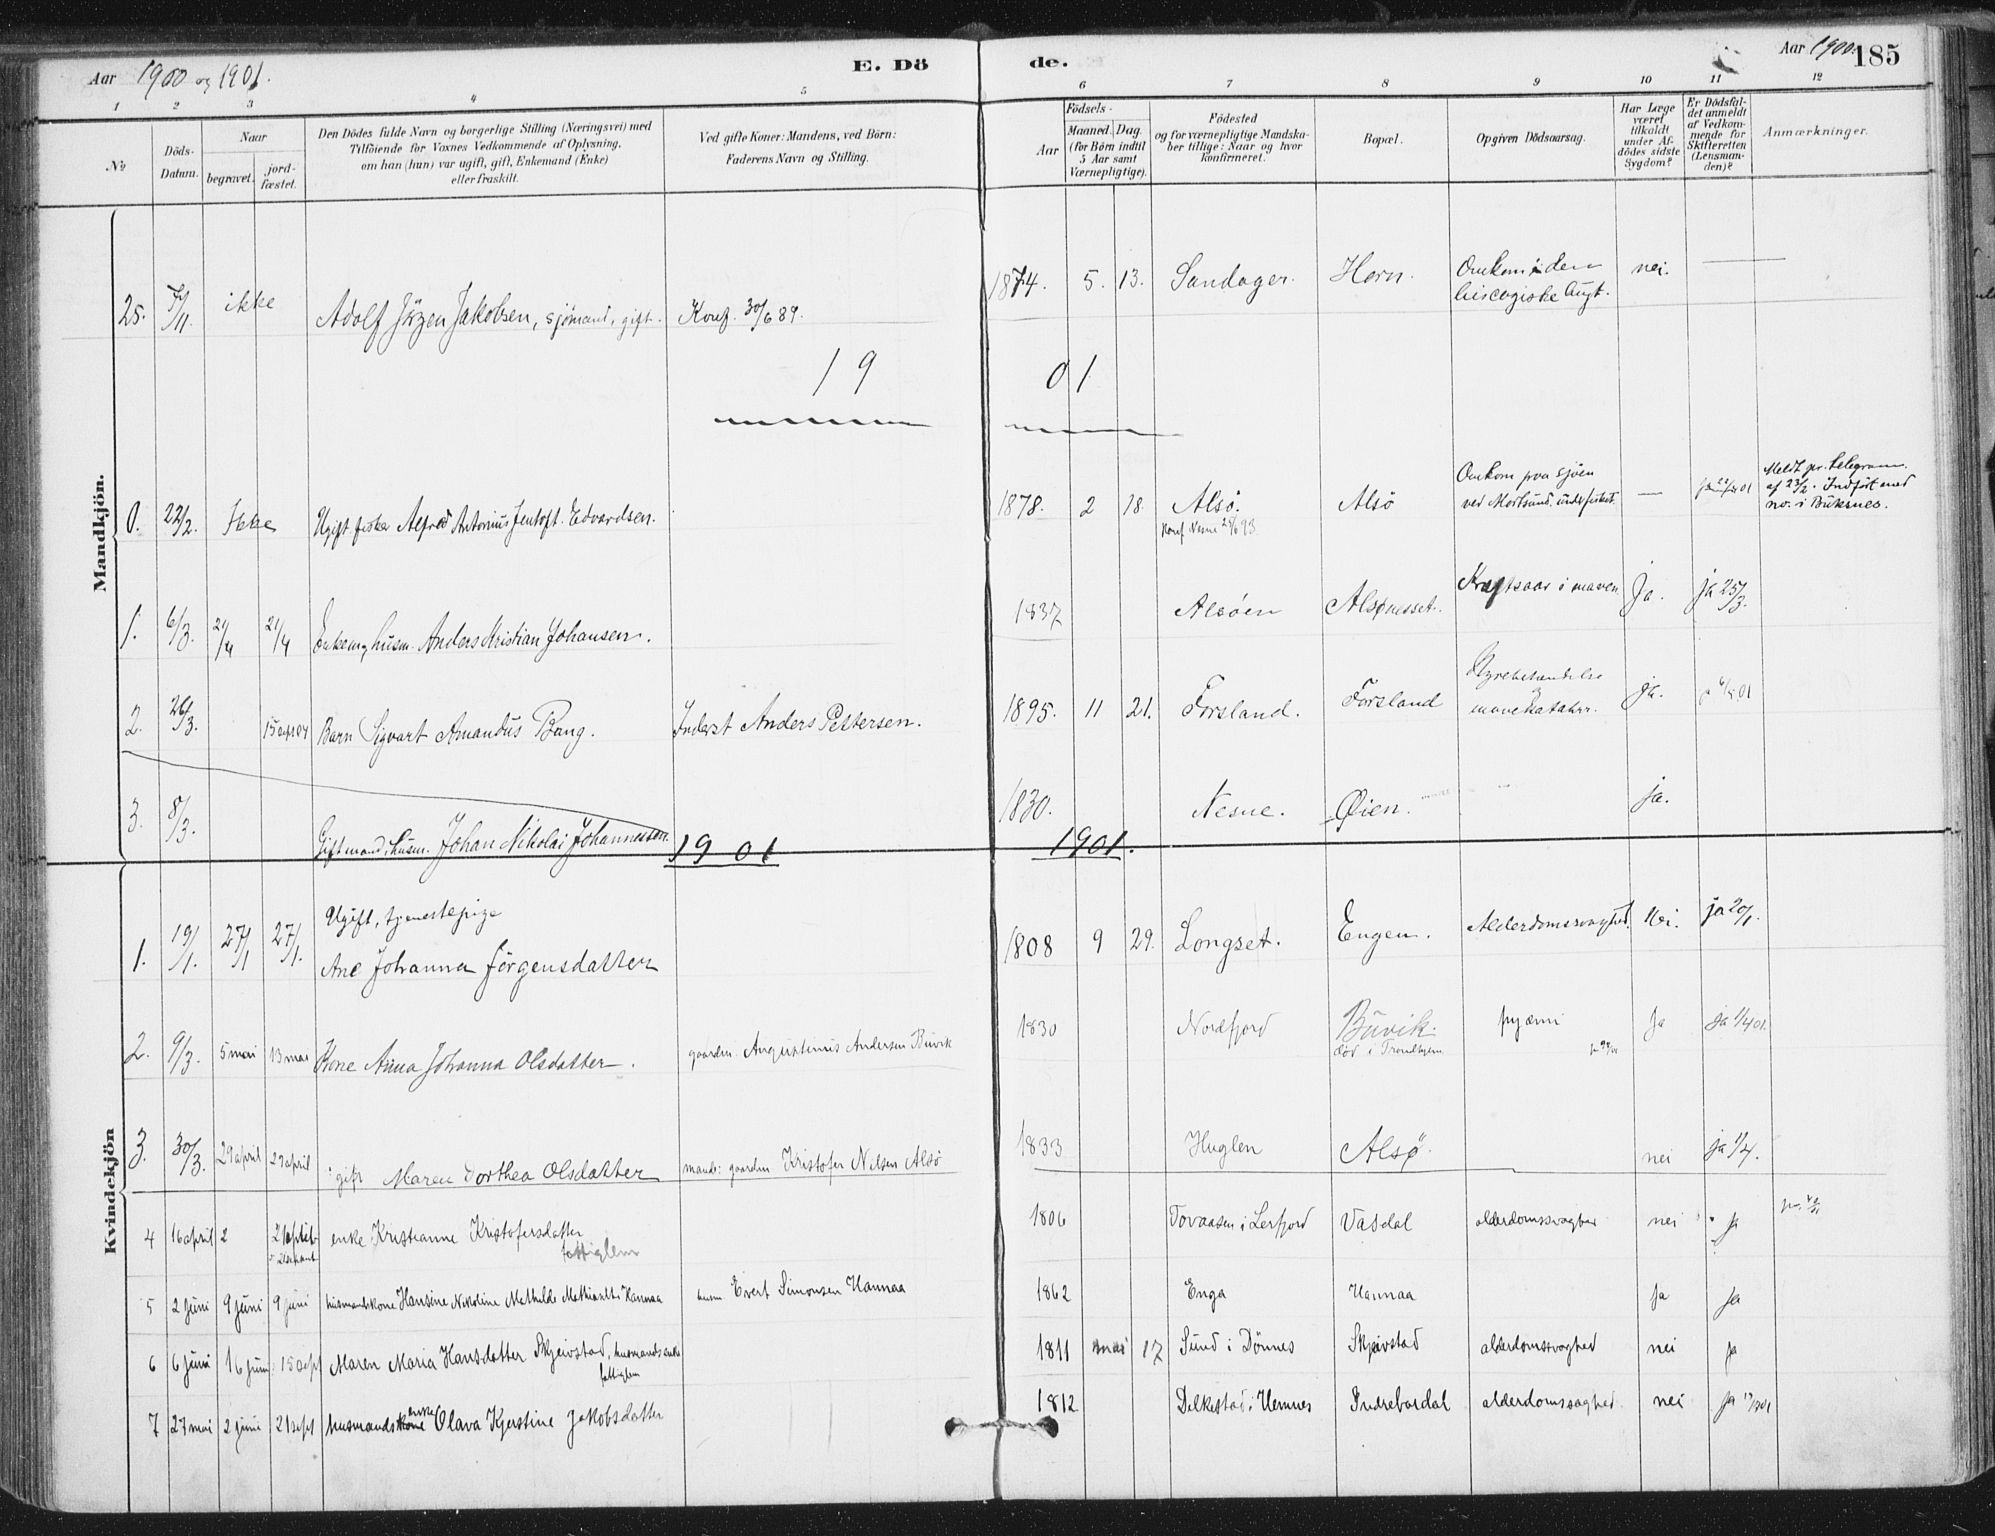 Aar 1900 og 1901.
E. Dö
de.
Aar 1900. 185
1 2 3 4 5 6 7 8 9 10 11 12
No
Döds-Datum.
Naar
begravet.
jord-fæstet.
Den Dödes fulde Navn og borgerlige Stilling (Næringsvei) med
Tilföiende for Voxnes Vedkommende af Oplysning,
om han (hun) var ugift, gift, Enkemand (Enke)
eller fraskilt.
Ved gifte Koner: Mandens, ved Börn:
Faderens Navn og Stilling.
Födsels-
Aar
Maaned. Dag.
(for Börn indtil
5 Aar samt
Værnepligtige).
Födested
og for værnepligtige Mandska-
ber tillige: Naar og hvor
konfirmeret.
Bopæl.
Opgiven Dödsaarsag.
Har Læge
været
tilkaldt
under Af-
dödes sidste
Sygdom?
Er Dödsfal-
det anmeldt
af Vedkom-
mende for
Skifteretten
(Lensman-
den)?
Anmærkninger.
Mandkjön.
25. ikke Adolf Jörgen Jakobsen, sjömand, gift. Konf. 30/6 89. 1874. 5. 13. Sandager. Horn. Omkom i den nei.
19 01
0. 22/2. Ikke Ugift fisker Alfred Antonius Jentoft Edvardsen. 1878. 2 18. Alsö. Konf Nesne 93 Alsö Omkom paa sjöen
ved Mortsund under fisket. — Meldt pr. telegram
af 23/2. Indfört med
no. i Buksnes.
1. 6/3. 21/4 21/4 Enkem, husm. Anders Kristian Johansen. 1837 Alsöen Alsönesset. Kræftsaar i maven Ja. ja 25/3.
2. 26/3. 15 sept 04 Barn Sigvart Amandus Bang. Inderst Anders Pettersen. 1895. 11 21. Forsland. Forsland
mavekatahrr. ja.
3. 8/3. Gift mand, husm. Johan Nikolai Johannessen. 1830. Nesne. Øien. ja.
1901 1901.
Kvindekjön
1. 19/1. 27/1 27/1. Ugift, tjenestepige
Ane Johanna Jörgensdatter 1808 9 29. Longset. Engen. Alderdomssvaghed. Nei. ja 20/1.
2. 9/3. 5 mai 13 mai Kone Anna Johanna Olsdatter. gaardm. Augustinus Andersen Buvik 1830 Nordfjord Buvik.
död i Trondhjem pyæmi Ja ja 1/4 01.
3. 30/3. 29 april 29 april gift Maren Dorthea Olsdatter mand: gaardm Kristofer Nilsen Alsö 1833 Huglen Alsø. nei ja 1/4.
4 16 april 2 enke Kristianne Kristofersdatter
fattiglem 1806 Tovaasen i Lerfjord Vasdal alderdomssvaghed nei ja
5 2 juni 9 juni 9 juni husmandskone Hansine Nikoline Mathilde Mathiasdtr Hannaa husm Evert Simonsen Hannaa 1862 Enga Hannaa ja ja
6 6 juni 16 juni 15 sept Maren Maria Hansdatter Skjeivstad, husmands enke
fattiglem 1811 mai 17 Sund i Dönnes Skjeivstad alderdomssvaghed nei ja
7 27 mai 2 juni 21 sept husmandskone enke Olava Kjerstine Jakobsdatter 1812 Delkestad i Hemnes Indrebardal alderdomssvaghed nei ja